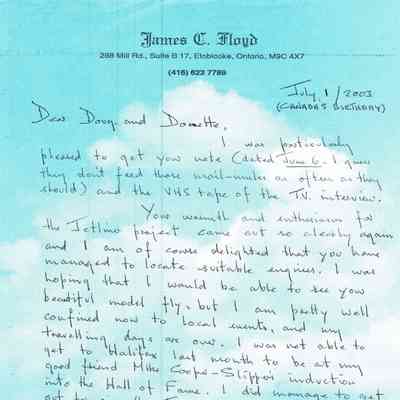 James C. Floyd
288 Mill Rd., Suite B 17, Etobicoke, Ontario, M9C 4X7
(416) 622 7789
July, 1/2003
(CANADA'S BIRTHDAY)
Dear Doug and Donette,
I was particularly
pleased to get your note (dated June 6. I guess
they don't feed those mail-mules as often as they
should) and the VHS tape of the T.V. interview.
Your warmth and enthusiasm for
the Jetliner project came out so clearly again
and I am of course delighted that you have
managed to locate suitable engines. I was
hoping that I would be able to see your
beautiful model fly, but I am pretty well
confined now to local events, and my
travelling days are over. I was not able to
get to Halifax last month to be at my
good friend Mike Cooper-Slipper's induction
into the Hall of Fame. I did manage to get